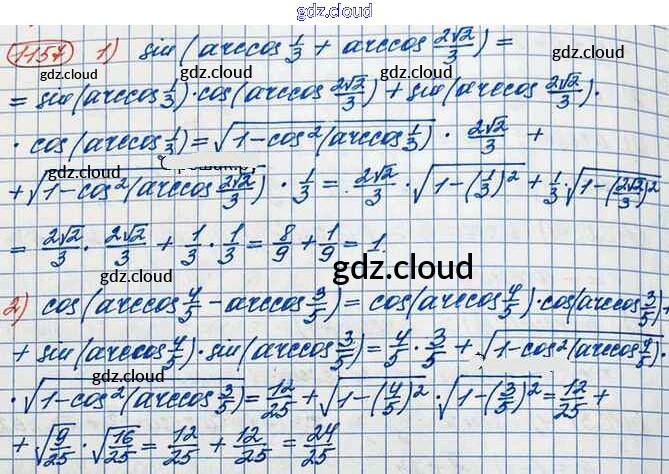 gdz.cloud
gdz.cloud
1157 1) sin(arccos 1/3 + arccos 2√2/3) =
= sin(arccos 1/3)·cos(arccos 2√2/3) + sin(arccos 2√2/3)·
· cos(arccos 1/3) = √(1-cos²(arccos 1/3)) · 2√2/3 +
+ √(1-cos²(arccos 2√2/3)) · 1/3 = 2√2/3 · √(1-(1/3)²) + 1/3·√(1-(2√2/3)²)
= 2√2/3 · 2√2/3 + 1/3 · 1/3 = 8/9 + 1/9 = 1.
gdz.cloud
2) cos(arccos 4/5 - arccos 3/5) = cos(arccos 4/5)·cos(arccos 3/5)+
+ sin(arccos 4/5)·sin(arccos 3/5) = 4/5 · 3/5 + √(1-cos²(arccos 4/5))·
· √(1-cos²(arccos 3/5)) = 12/25 + √(1-(4/5)²) · √(1-(3/5)²) = 12/25 +
+ √(9/25) · √(16/25) = 12/25 + 12/25 = 24/25